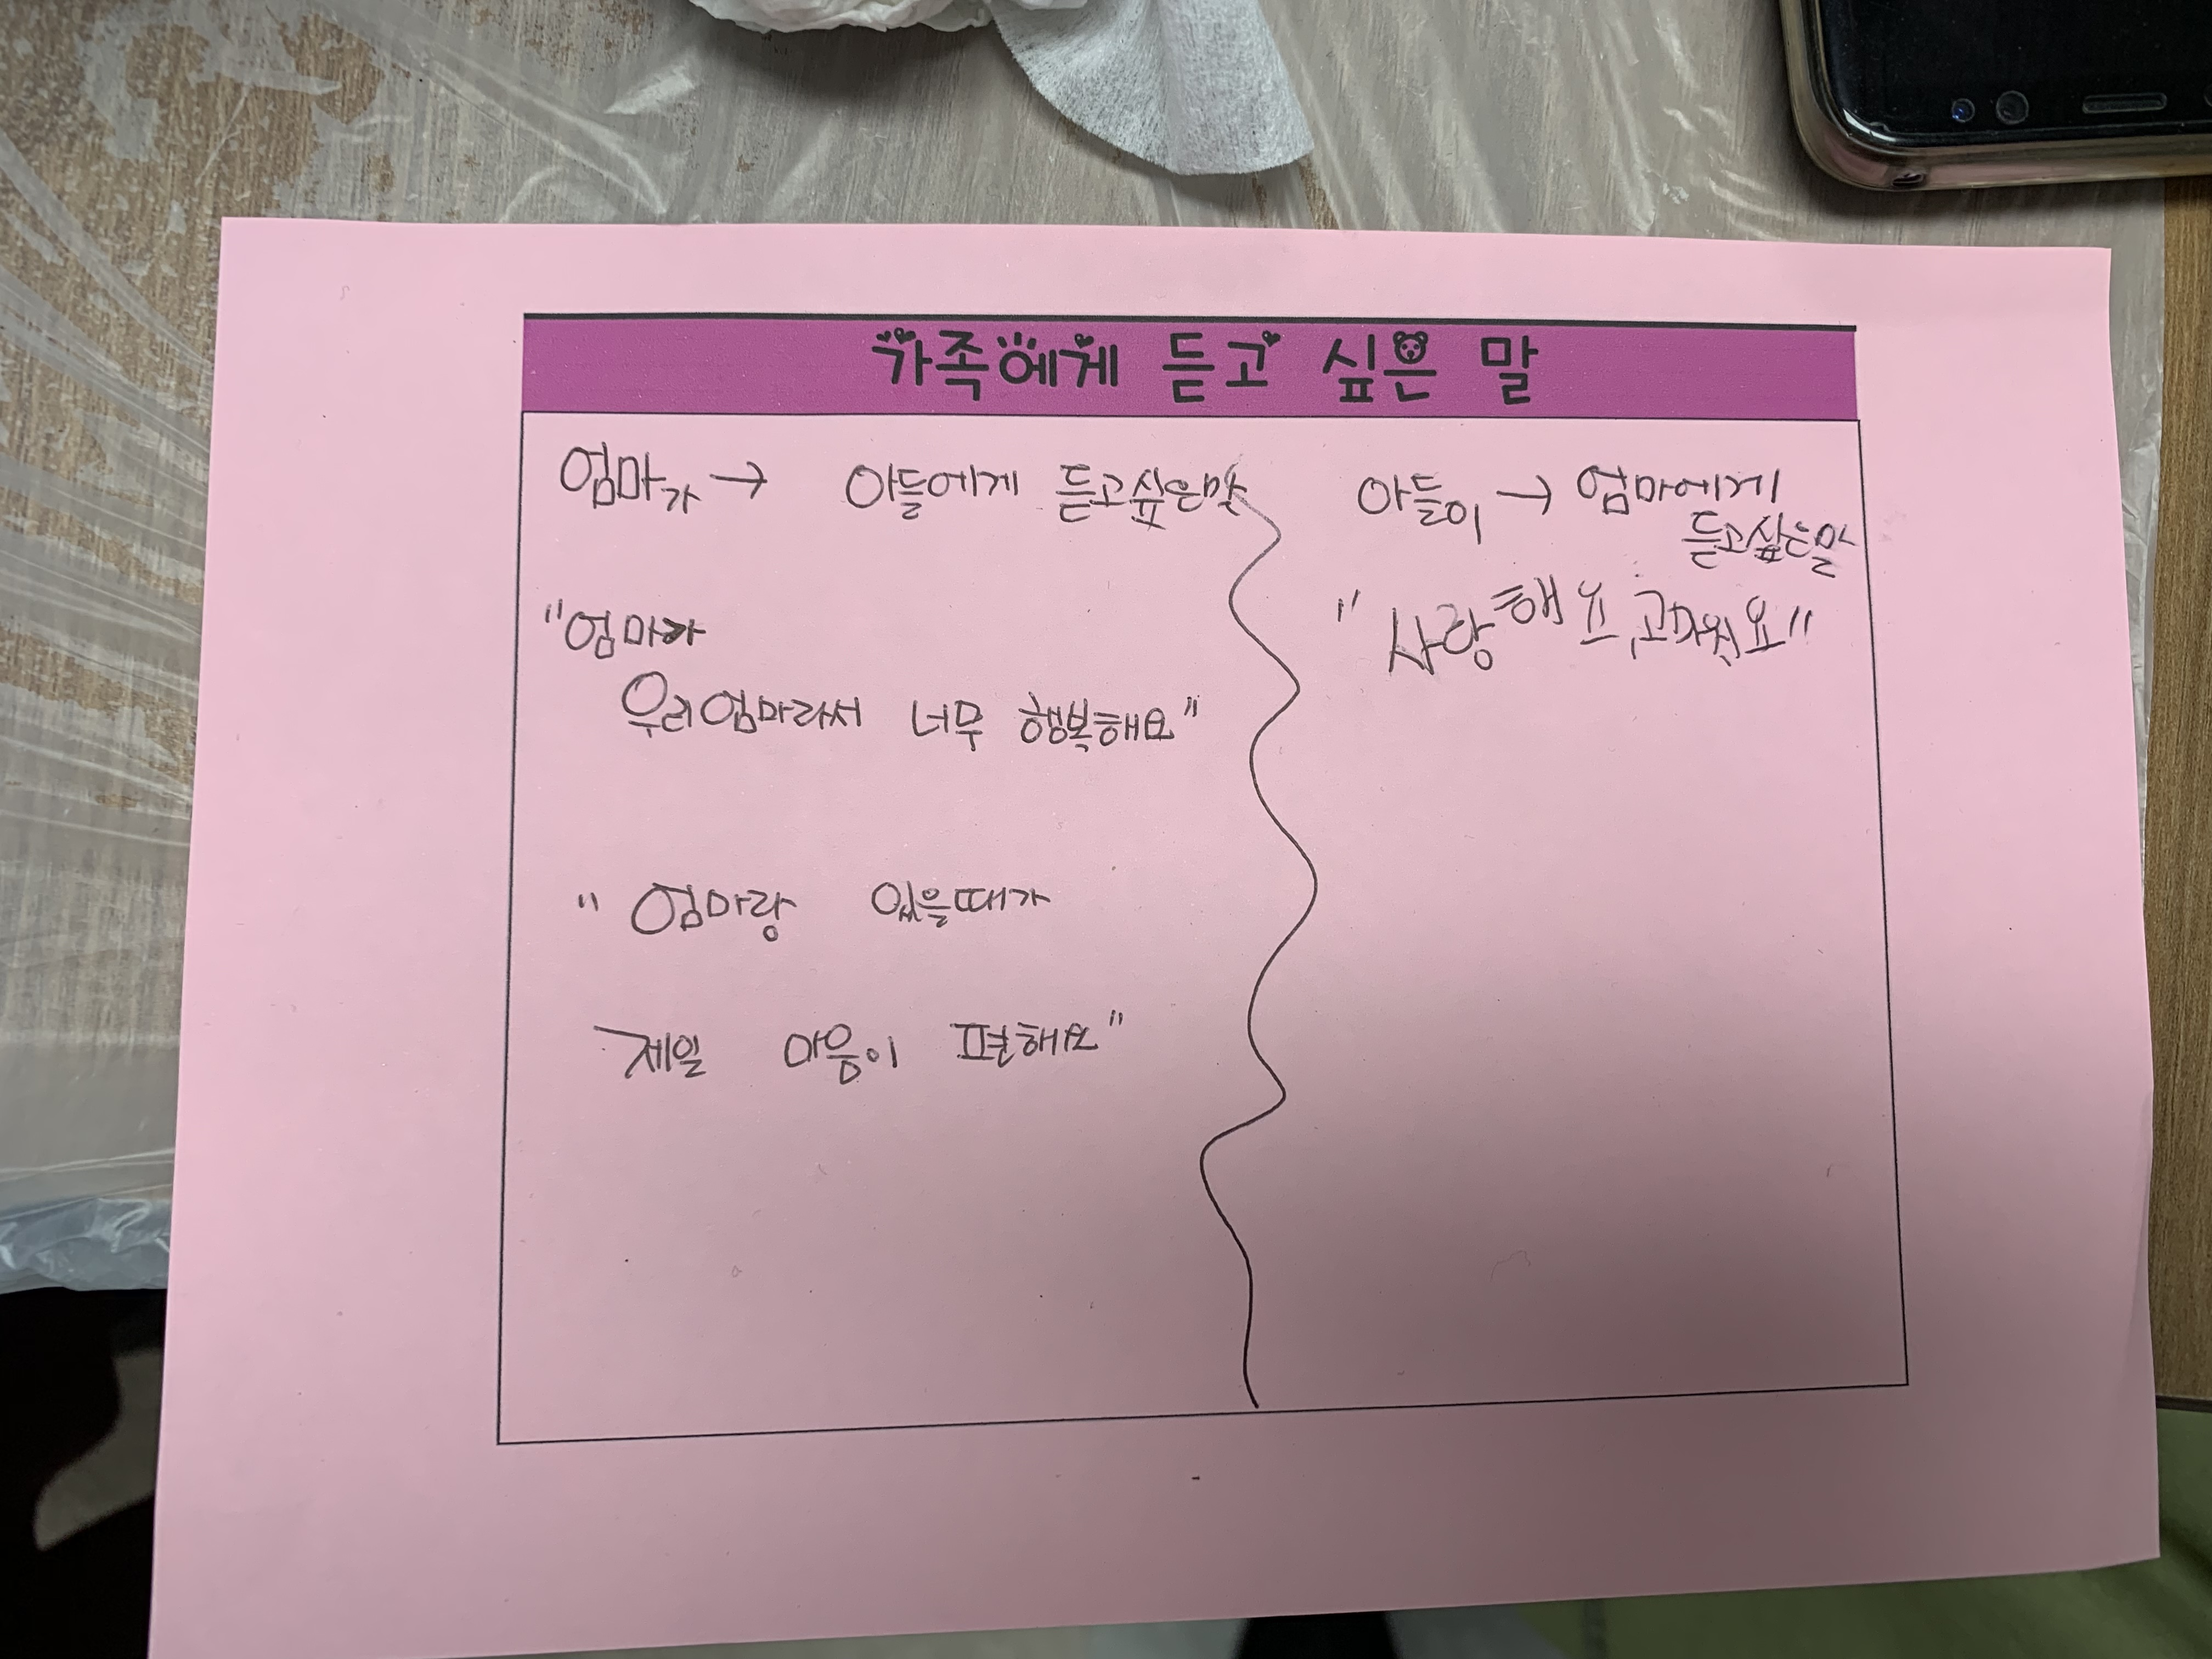 가족에게 듣고 싶은 말
엄마가 → 아들에게 듣고싶은말
"엄마가
우리엄마라서 너무 행복해요"
"엄마랑 있을때가
제일 마음이 편해요"
아들이 → 엄마에게
듣고싶은말
"사랑해요, 고마워요"